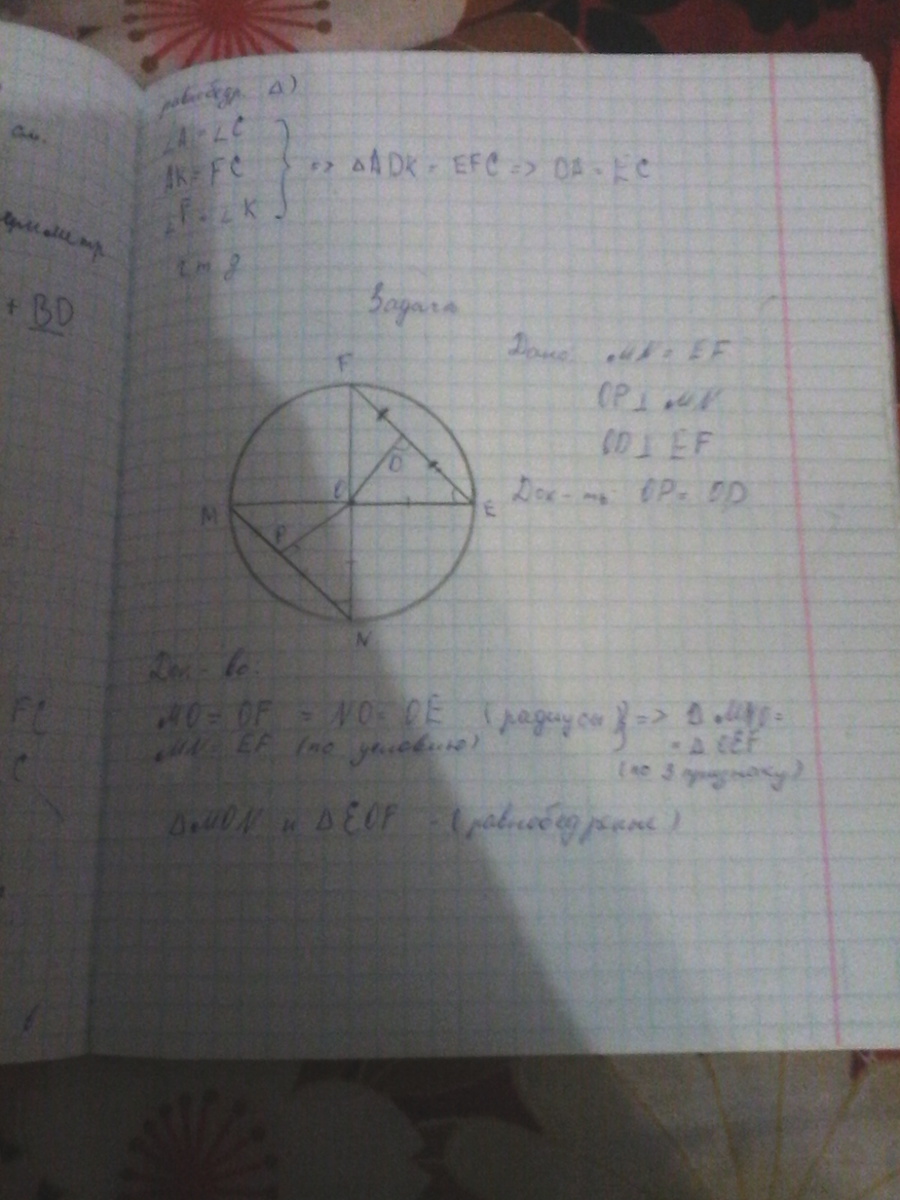 см.
+ BD
FC
C
равнобедр. Δ)
∠A = ∠C
AK = FC
∠F = ∠K
=> ΔADK = EFC => DA = EC
ч т д
Задача
Дано: MN = EF
OP ⊥ MN
OD ⊥ EF
Док-ть: OP = OD
F
D
O
M
E
P
N
Док-во:
MO = OF = NO = OE (радиусы } => Δ MNO =
MN = EF (по условию) = Δ OEF
(по 3 признаку)
Δ MON и Δ EOF - (равнобедренные)